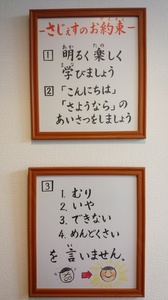 -さじぇすのお約束-
1 明るく楽しく
学びましょう
2 「こんにちは」
「さようなら」の
あいさつをしましょう
3
1. むり
2. いや
3. できない
4. めんどくさい
を言いません。